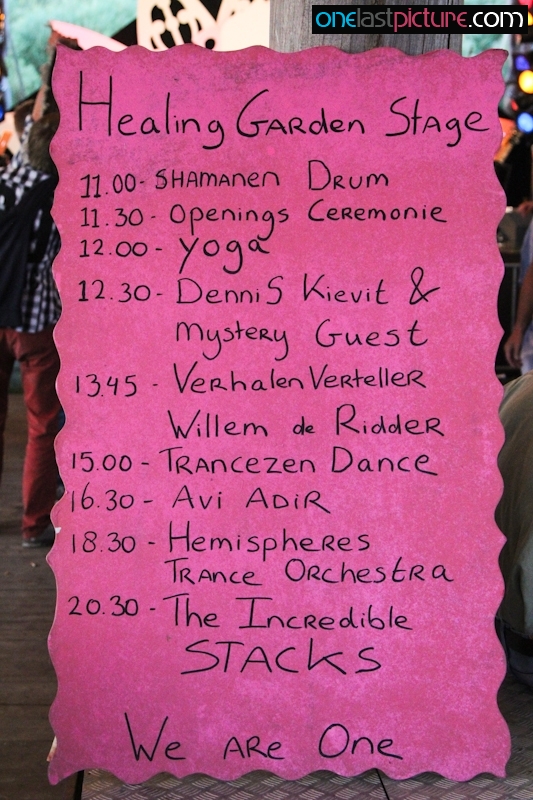 onelastpicture.com
Healing Garden Stage
11.00 - Shamanen Drum
11.30 - Openings Ceremonie
12.00 - Yoga
12.30 - Dennis Kievit &
Mystery Guest
13.45 - Verhalen Verteller
Willem de Ridder
15.00 - Trancezen Dance
16.30 - Avi Adir
18.30 - Hemispheres
Trance Orchestra
20.30 - The Incredible
STACKS
We are One